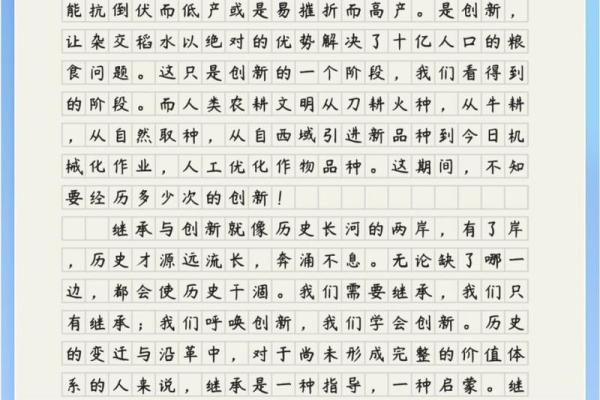 能抗倒伏而低产或是易摧折而高产。是创新，
让杂交稻水以绝对的优势解决了十亿人口的粮
食问题。这只是创新的一个阶段，我们看得到
的阶段。而人类农耕文明从刀耕火种，从牛耕
，从自然取种，从自西域引进新品种到今日机
械化作业，人工优化作物品种。这期间，不知
要经历多少次的创新！
继承与创新就像历史长河的两岸，有了岸
，历史才源远流长，奔涌不息。无论缺了哪一
边，都会使历史干涸。我们需要继承，我们只
有继承；我们呼唤创新，我们学会创新。历史
的变迁与沿革中，对于尚未形成完整的价值体
系的人来说，继承是一种指导，一种启蒙。继